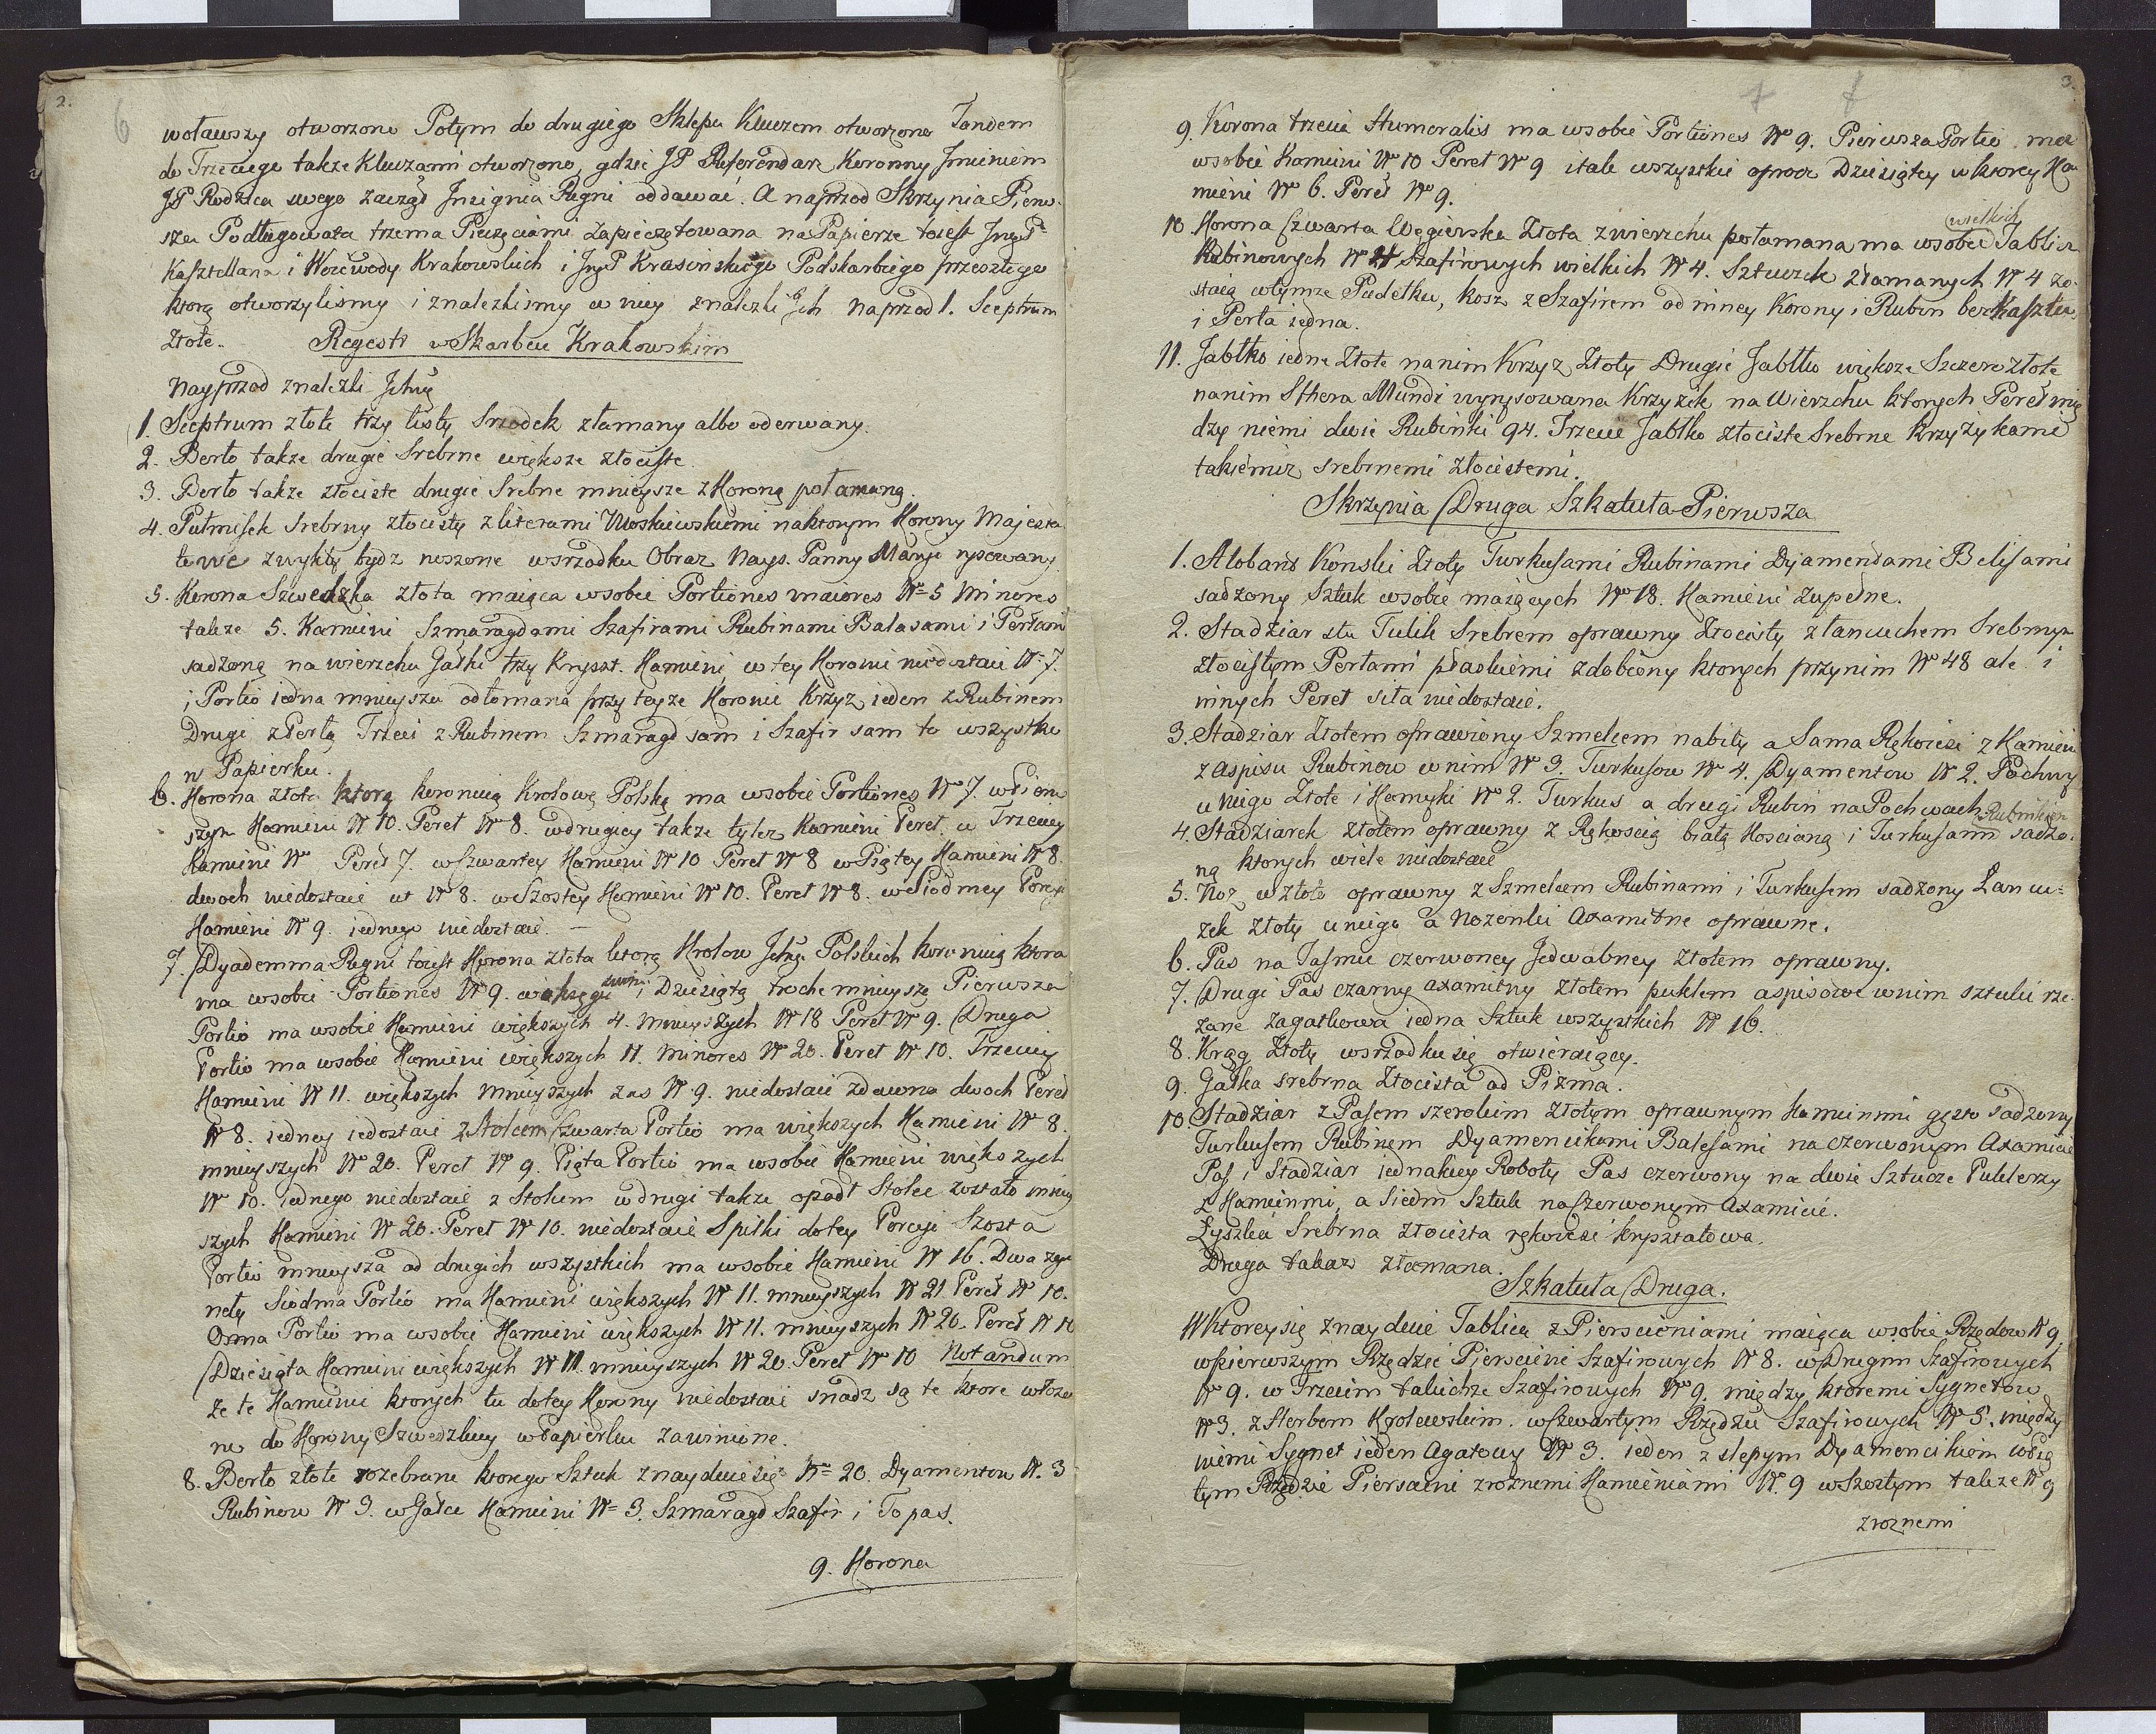 2.
6
wołauszy otworzono Potym do drugiego Sklepu Kluczem otworzono Tandem
do Trzeciego także Kluczami otworzono, gdzie JP Referendarz Koronny Jmieniem
JP Rodzica swego zaczął Jnsignia Regni oddawać. A naprzod Skrzynia Pierw
sza Podługowata trzema Pieczęciami zapieczętowana na Papierze toiest
Kasztellana i Woiewody Krakowskich i Krasinskiego Podskarbiego przeszłego
ktorą otworzylismy i znalezlismy w niey znalezli Jch naprzod 1. Sceptrum
złote.
Regestr w Skarbcu Krakowskim
Nayprzod znalezli Jchmę
1. Sceptrum złote trzy listy Srzodek złamany albo oderwany.
2. Berło także drugie Srebrne większe złociste.
3. Berło także złociste drugie Srebne mnieysze z Koroną połamaną.
4. Putmisek Srebrny złocisty z literami Moskiewskiemi naktorym Korony Majesta
towe zwykły bydz noszone wsrzodku Obraz Nays. Panny Maryi rysowany
5. Korona Szwedzka złota maiąca wsobie Portiones maiores N= 5 Minores
także 5. Kamieni Szmaragdami Szafirami Rubinami Balasami i Perłami
sadzoną na wierzchu Gałki trzy Kryszt. Kamieni, w tey Koronie niedostaie N. 7.
i Portio iedna mnieysza odłomana przy teyze Koronie Krzyz ieden z Rubinem
Drugi z Perłą Trzeci z Rubinem Szmaragd sam i Szafir sam to wszystko
w Papierku.
6. Korona złota ktorą koronuią Krolowę Polską ma wsobie Portiones N 7. wPierw
szym Kamieni N 10. Pereł N 8. wdrugiey także tylez Kamieni Pereł. w Trzeciey
Kamieni N Pereł 7. wCzwartey Kamieni N 10 Pereł N 8 wPiątey Kamieni N 8.
dwoch niedostaie ut N 8. wSzostey Kamieni N 10. Pereł N 8. wSiodmey Porcyi
Kamieni N 9. iednego niedostaie. —
7. Dyademma Regni toiest Korona złota ktorą Krolow Jchę Polskich koronuią ktora
ma wsobie Portiones N 9. i Dziesiątą troche mnieyszą Pierwsza
Portio ma wsobie Kamieni większych 4. mnieyszych N 18 Pereł N 9. Druga
Portio ma wsobie Kamieni większych 11. minores N 20. Pereł N 10. Trzeciey
Kamieni N 11. większych mnieyszych zas N 9. niedostaie zdawna dwoch Pereł
N 8. iedney iedostaie z Stolcem Czwarta Portio ma większych Kamieni N 8.
mnieyszych N 20. Pereł N 9. Piąta Portio ma wsobie Kamieni większych
N 10. iednego niedostaie z Stolcem w drugi także opadł Stolec zostało mniey
szych Kamieni N 20. Pereł N 10. niedostaie Spilki dotey Porcyi Szosta
Portio mnieysza od drugich wszystkich ma wsobie Kamieni N 16. Dwa zgi
neły Siodma Portio ma Kamieni większych N 11. mnieyszych N 21 Pereł N 10.
Osma Portio ma wsobie Kamieni większych N 11. mnieyszych N 20. Pereł N 10
Dziesiąta Kamieni większych N 11. mnieyszych N 20. Pereł N 10 Notandum
ze te Kamieni ktorych tu dotey Korony niedostaie snadz są te ktore włożo
no do Korony Szwedzkiey wPapierku zawinione.
8. Berło złote rozebrane ktorego Sztuk znayduie się N= 20. Dyamentow N. 3
Rubinow N 3. wGałce Kamieni N= 3. Szmaragd Szafir i Topas.
9. Korona
3.
9. Korona trzecia Humeralis ma wsobie Portiones N 9. Pierwsza Portio ma
wsobie Kamieni N 10 Pereł N 9 itak wszystkie oprocz Dziesiątey wktorey Ka
mieni N 6. Pereł N 9.
10. Korona Czwarta Węgierska Złota zwierzchu połamana ma wsobie wielkich Tablic
Rubinowych N Szafirowych wielkich N 4. Sztuczek złamanych N 4 zo
staią wtymze Pudełku, kosz z Szafirem od inney Korony i Rubin bez Kasztu
i Perła iedna.
11. Jabłko iedne Złote nanim Krzyz Złoty Drugie Jabłko większe Szczerozłote
nanim Sthera Mundi wyrysowana Krzyzik na Wierzchu ktorych Pereł mię
dzy niemi dwie Rubinki 94. Trzecie Jabłko złociste Srebrne Krzyzykami
takiemiz srebrnemi złocistemi.
Skrzynia Druga Szkatuła Pierwsza
1. Alobant Konski Złoty Turkusami Rubinami Dyamentami Belisami
sadzony Sztuk wsobie maiących N 18. Kamieni Zupełne.
2. Stadziar sta Tulik Srebrem oprawny Złocisty złancuchem Srebrnym
złocistym Perłami płaskiemi zdobiony ktorych przynim N 48 ale i
innych Pereł siła niedostaie.
3. Stadziar Złotem oprawiony Szmelcem nabity a Sama Rękoiesc z Kamien
z aspisu Rubinow wnim N 9. Turkusow N 4. Dyamentow N 2. Pochwy
u niego Złote i Hamyki N 2. Turkus a drugi Rubin naPochwach Rubinkiem
4. Stadziarek złotem oprawny z Rękoscią białą Koscianą i Turkusami sadzo
ną ktorych wiele niedostaie
5. Noz wzłoto oprawny z Szmelcem Rubinami i Turkusem sadzony Łancu=
zek złoty uniego a Nozenki Axamitne oprawne.
6. Pas na Tasmie czerwoney Jedwabney złotem oprawny.
7. Drugi Pas czarny axamitny złotem puklem aspisowe wnim sztuki rze
zane Zagatkowa iedna Sztuk wszystkich N 16.
8. Krąg Złoty wsrzodku się otwieraiący.
9. Gałka srebrna Złocista od Pizma.
10. Stadziar z Pasem szerokim złotym oprawnym Kamieniami gęsto sadzony
Turkusem Rubinem Dyamencikami Balesami na czerwonym Axamicie
Pas i Stadziar iednakiey Roboty Pas czerwony na dwie Sztucze Puklerzy
z Kamieinmi, a Siedm Sztuk naCzerwonym Axamicie.
Łyszka Srebrna złocista rękoiesc kryształowa.
Druga takaz złamana.
Szkatuła Druga.
WKtorey się znayduie Tablica z Pierscieniami maiąca wsobie Rzędow N 9
wPierwszym Rzędzie Pierscieni Szafirowych N 8. wDrugim Szafirowych
N 9. w Trzecim takichze Szafirowych N 9. między ktoremi Sygnetow
N 3. z Herbem Krolewskim. wCzwartym Rzędzie Szafirowych N 5. między
niemi Sygnet ieden Agatowy N 3. ieden z slepym Dyamencikiem wPią
tym Rzędzie Pierscieni zroznemi Kamieniami N. 9 wSzostym takze N 9
zroznemi